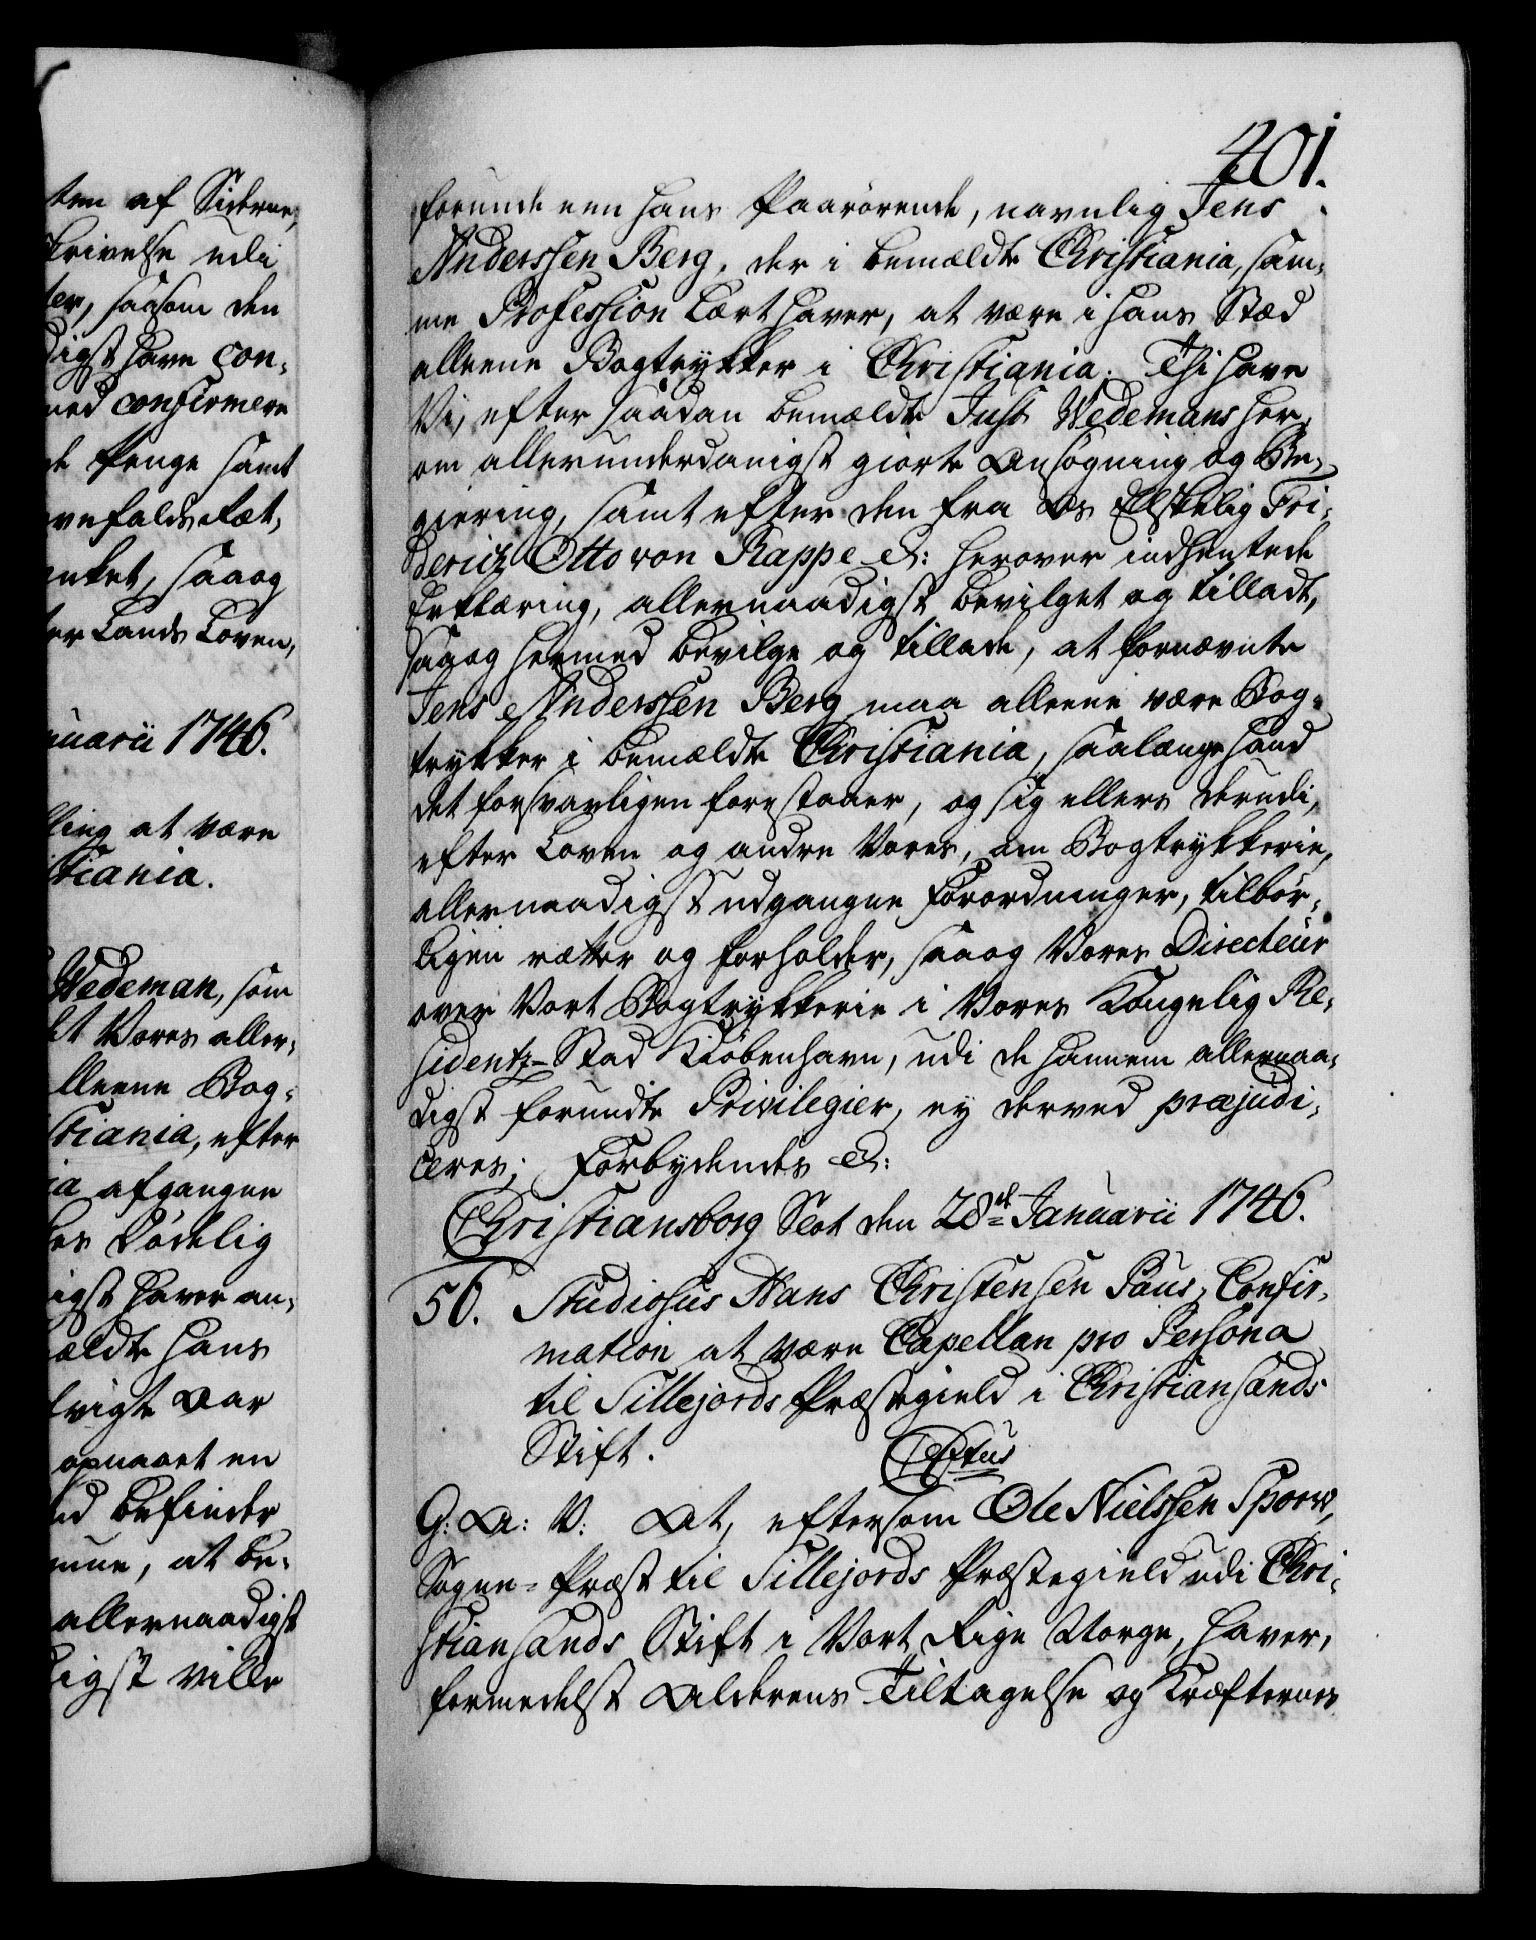 ten af Siderne,
skrivelse udi
ter, saasom den
digst have con-
med confirmere
de Penge samt
ovefalds Læt,
enket, saaog
er Lands Loven,
nuarii 1746.
lling at være
stiania.
Wedeman, som
Vores aller-
lleene Bog-
stiania, efter
ia afgangne
es Dödelig
igst haver an-
ældte hans
Aar
opnaaet en
befinder
at be-
allernaadigst
digst ville
401.
forunde een hans Paarörende, navnlig Jens
Anderssen Berg, der i bemældte Christiania, sam-
me Profession lært haver, at være i hans Stæd
alleene Bogtrykker i Christiania. Thi have
Vi, efter saadan bemældte Just Wedemans her-
om allerunderdanigst giorte Ansögning og Be-
giering, samt efter den fra Os Elskelig Fri-
derich Otto von Rappe &: herover indhentede
Erklæring, allernaadigst bevilget og tilladt,
saaog hermed bevilge og tillade, at fornævnte
Jens Anderssen Berg maa alleene være Bog-
trykker i bemældte Christiania, saalænge hand
det forsvarligen forestaaer, og sig ellers derudi,
efter Loven og andre Vores, om Bogtrykkerie,
allernaadigst udgangne Forordninger, tilbör-
ligen retter og forholder, saaog Vores Directeur
over Vort Bogtrykkerie i Vores Kongelig Re-
sidentz-Stad Kiöbenhavn, udi de hannem allernaa-
digst forundte Privilegier, ey derved præjudi-
ceres; Forbydendes &:
Christiansborg Slot den 28de Januarii 1746.
56. Studiosus Hans Christensen Paus, Confir-
mation at være Capellan pro Persona
til Tillejords Præstegield i Christiansands
Stift.
G: A: V: At, eftersom Ole Nielssen Spoorn,
Sogne-Præst til Tillejords Præstegield udi Chri-
stiansands Stift i Vort Rige Norge, haver,
formedelst Alderens Tiltagelse og Kræfternes